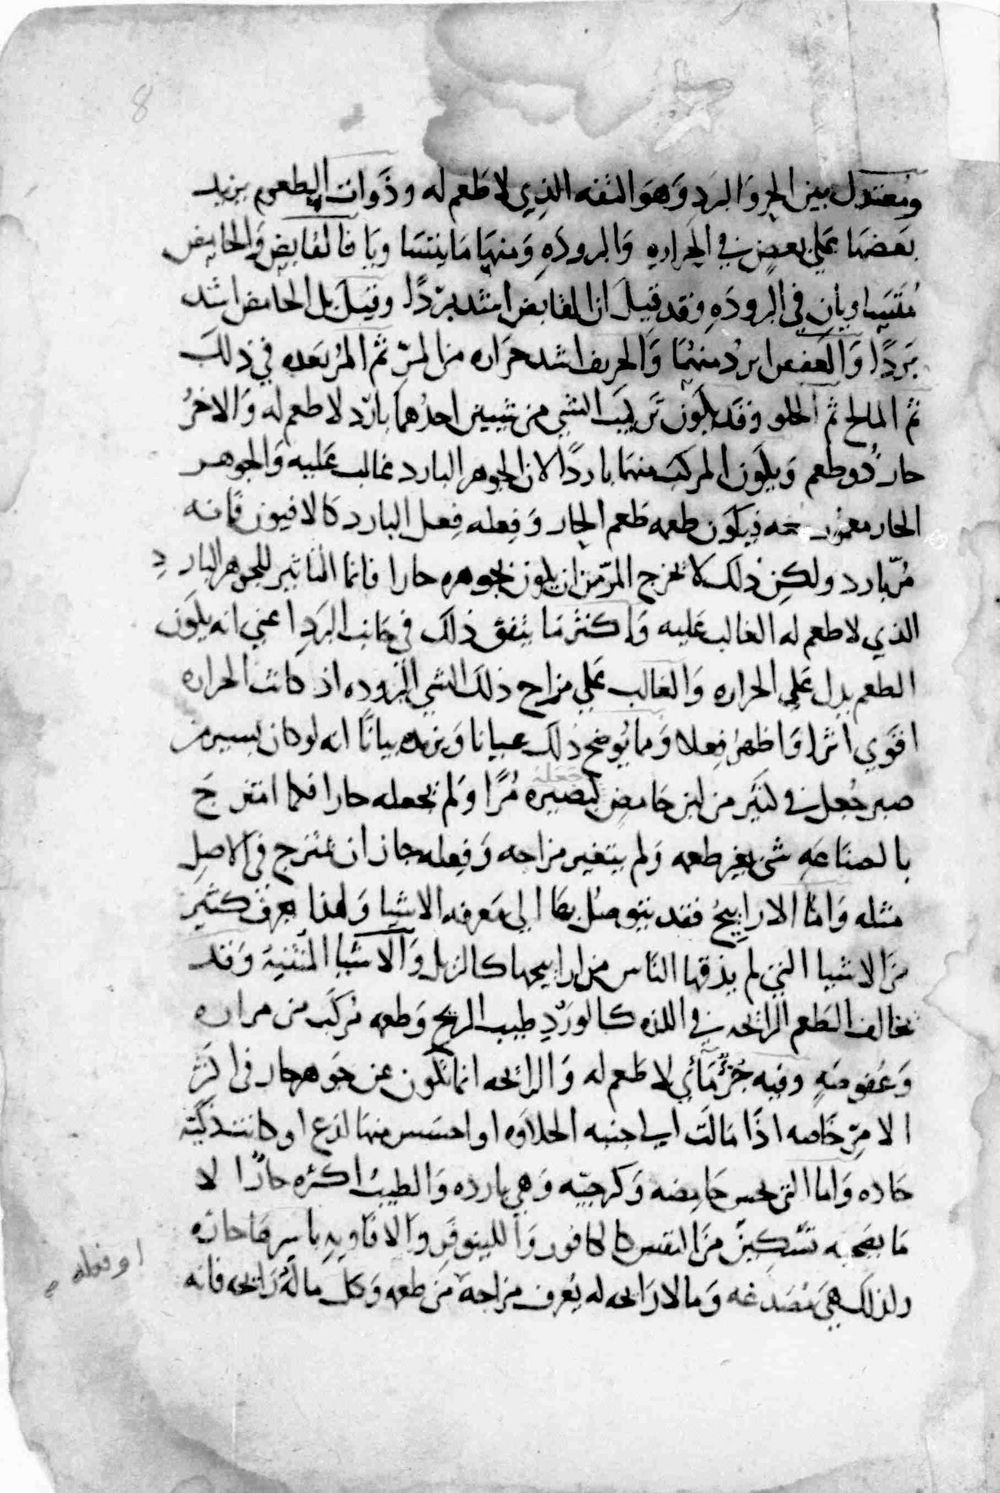 8
ومعتدل بين الحر والبرد وهو التفه الذي لا طعم له وذوات الطعوم يزيد
بعضها على بعض في الحراره والبروده ومنها ما يتساويا فالقابض والحامض
متساويان في البروده وقد قيل ان القابض اشد بردًا وقيل بل الحامض اشد
بردًا والعفص ابرد منهما والحريف اشد حراره من المرّ ثم المرّ بعده في ذلك
ثم المالح ثم الحلو وقد يكون تركيب الشي من شيين احدهما بارد لا طعم له والاخر
حار ذو طعم ويكون المركب منهما باردًا لان الجوهر البارد غالب عليه والجوهر
الحار مغمور معه فيكون طعمه طعم الحار وفعله فعل البارد كالافيون فانه
مرّ بارد ولكن ذلك لا يخرج المرّ من ان يكون بجوهره حارا فانما التاثير للجوهر البارد
الذي لا طعم له الغالب عليه واكثر ما يتفق ذلك في جانب البرد اعني انه يكون
الطعم يدل على الحراره والغالب على مزاج ذلك الشي البروده اذ كانت الحراره
اقوي اثرا واظهر فعلا ومما يوضح ذلك عيانا ويزيده بيانًا انه لو كان يسير من
صبر جُعل في كثير من لبن حامض ليصيره مُرًا ولم يجعله حارا فلما امتزج
جعله
بالصناعه شي يغير طعمه ولم يتغير مزاجه وفعله جاز ان يمتزج في الاصل
مثله واما الارابيح فقد يتوصل بها الى معرفه الاشيا ولهذا يعرف كثير
من الاشيا التي لم يذقها الناس من ارابيحها كالزبل والاشيا المنتنة وقد
يخالف الطعم الرائحه في اللذه كالورد طيب الريح وطعمه مركب من مراره
وعفوصه وفيه جزء مائي لا طعم له والرائحه انما تكون عن جوهر حار في اكثر
الامر خاصه اذا مالت الى جنبه الحلاوه او احسس منها لذع او كانت ذكيّة
حاده واما التي يحس حامضه وكرجيّه وهي بارده والطيب اكثره حارًا لا
ما يصحبه تسكين من النفس كالكافور والنيلوفر والافاويه باسرها حاره
ولذلك هي مُصَدعه وما لا رائحه له يعرف مزاجه من طعمه وكل ما له رائحه فانه
او فعله